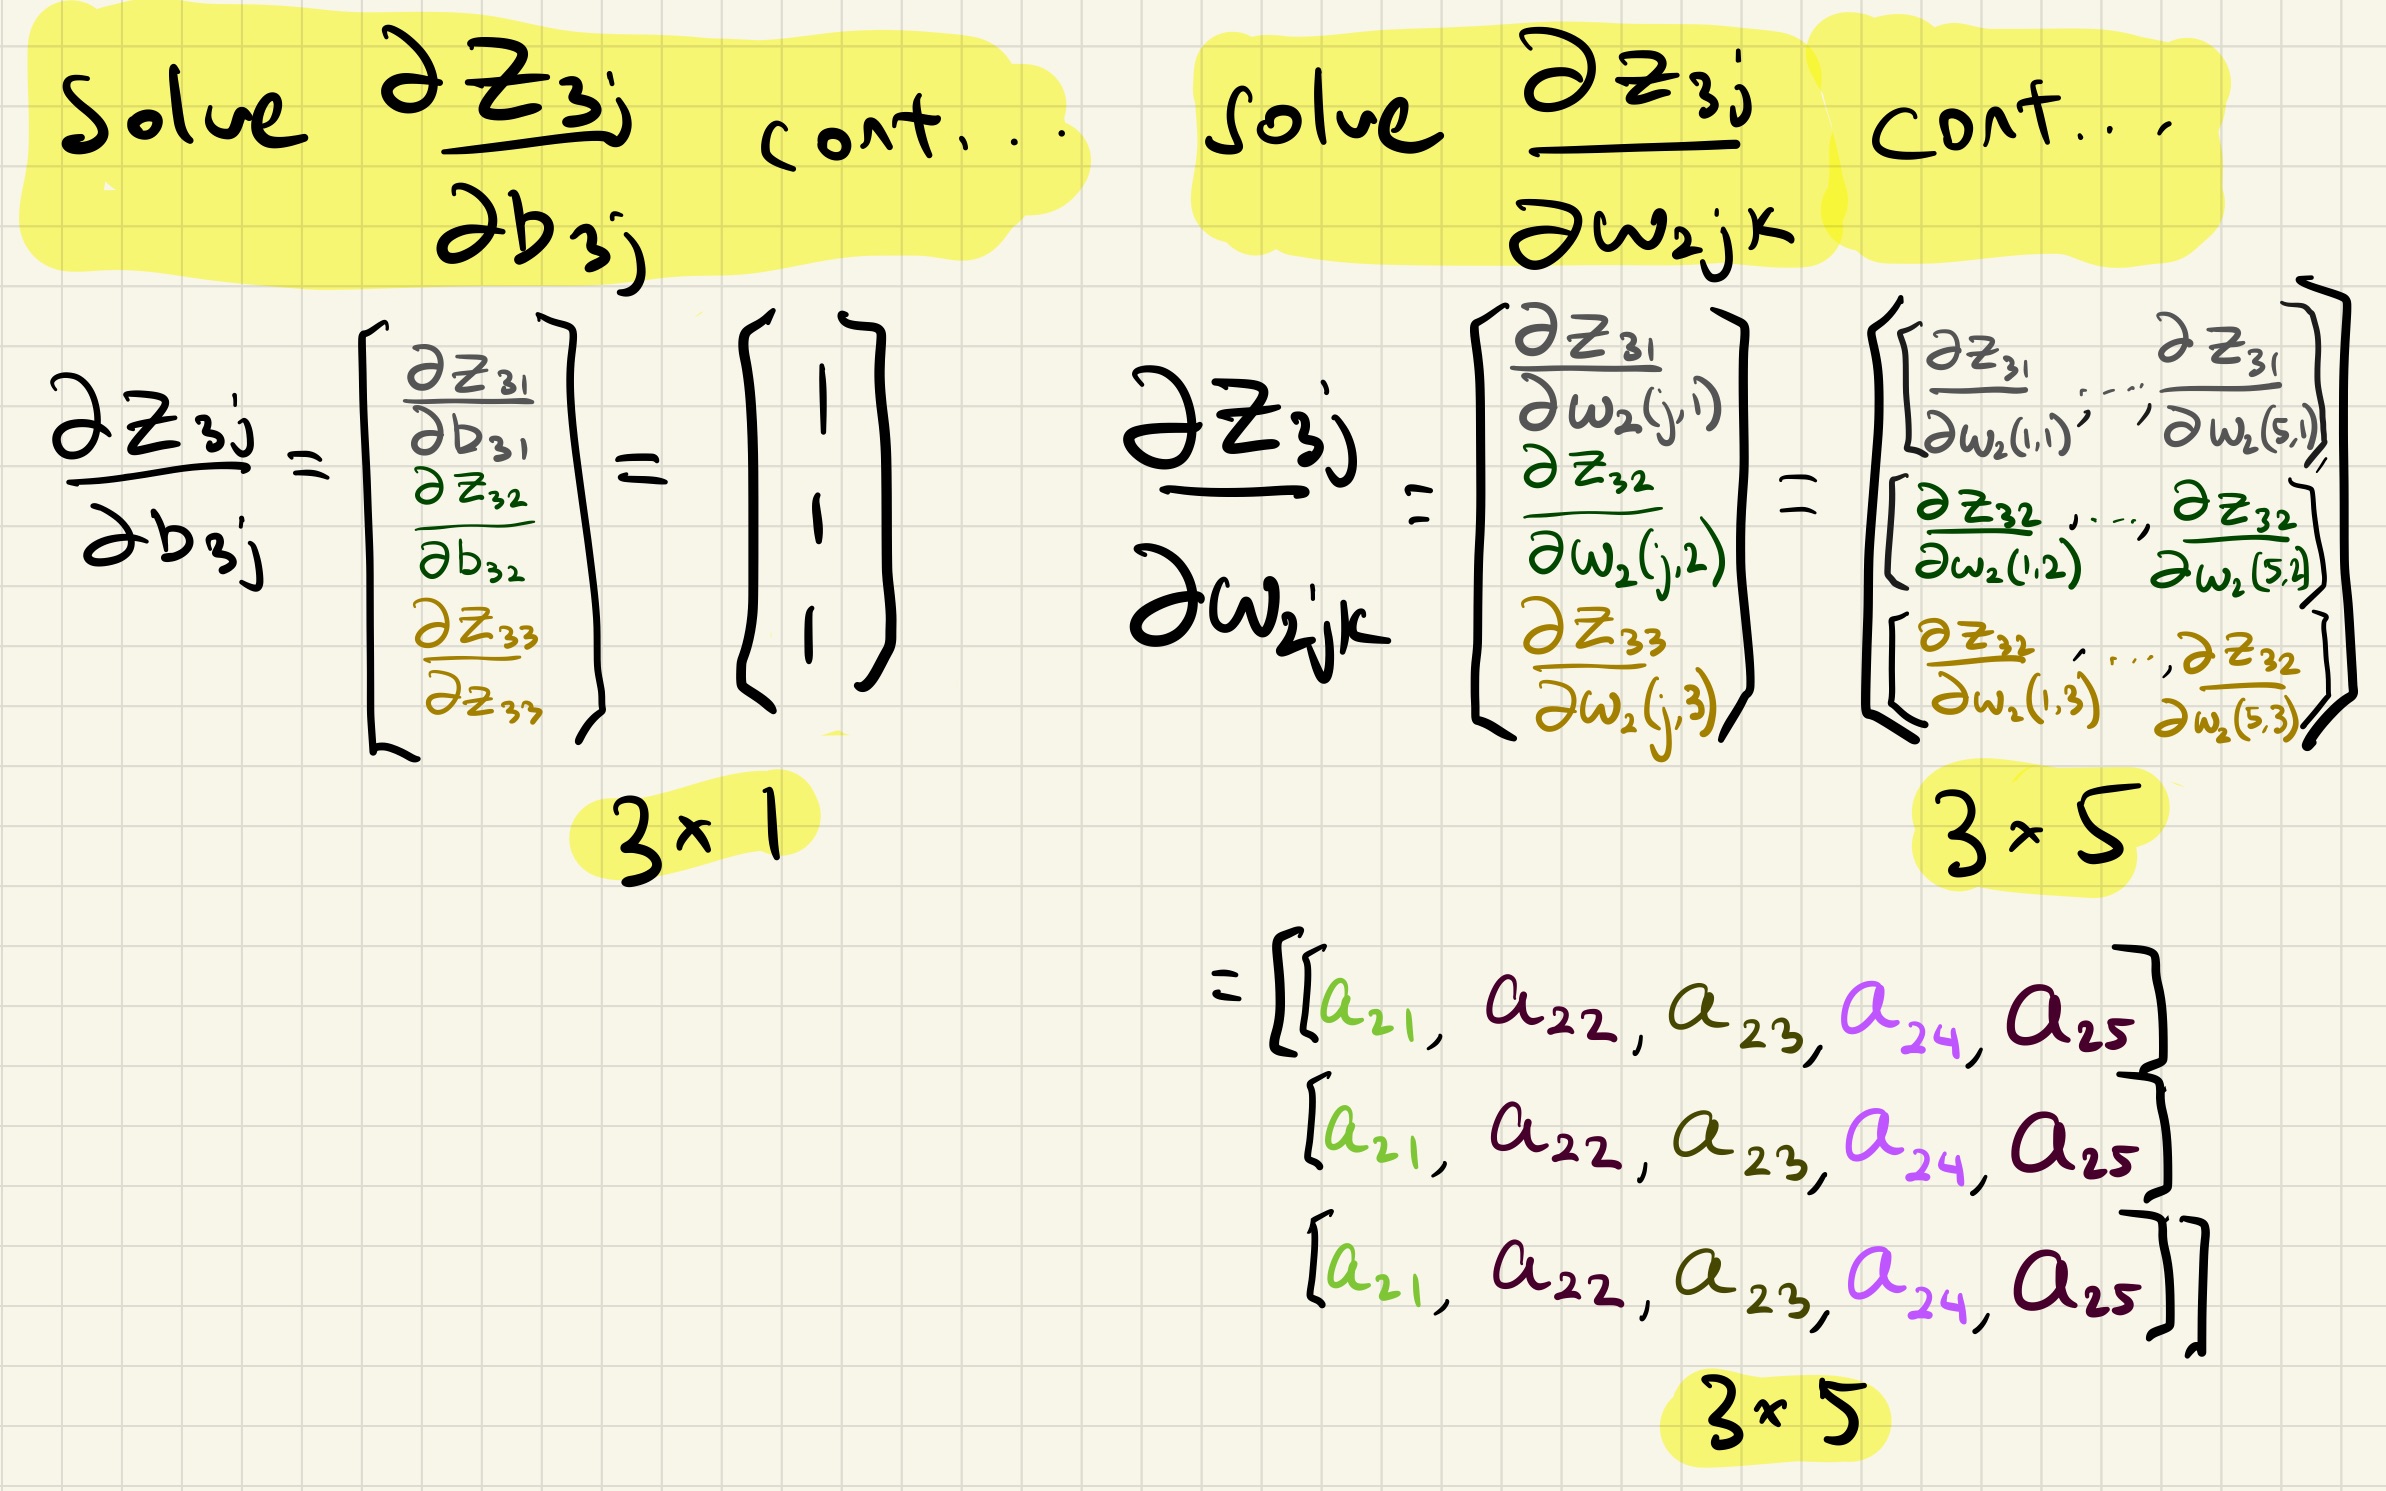 Solve ∂z₃ⱼ/∂b₃ⱼ cont...
∂z₃ⱼ/∂b₃ⱼ = [∂z₃₁/∂b₃₁
∂z₃₂/∂b₃₂
∂z₃₃/∂z₃₃] = [1
1
1]
3 × 1
Solve ∂z₃ⱼ/∂w₂ⱼₖ cont...
∂z₃ⱼ/∂w₂ⱼₖ = [∂z₃₁/∂w₂(j,1)
∂z₃₂/∂w₂(j,2)
∂z₃₃/∂w₂(j,3)] = [[∂z₃₁/∂w₂(1,1), ..., ∂z₃₁/∂w₂(5,1)]
[∂z₃₂/∂w₂(1,2), ..., ∂z₃₂/∂w₂(5,2)]
[∂z₃₂/∂w₂(1,3), ..., ∂z₃₂/∂w₂(5,3)]]
3 × 5
= [[a₂₁, a₂₂, a₂₃, a₂₄, a₂₅]
[a₂₁, a₂₂, a₂₃, a₂₄, a₂₅]
[a₂₁, a₂₂, a₂₃, a₂₄, a₂₅]]
3 × 5